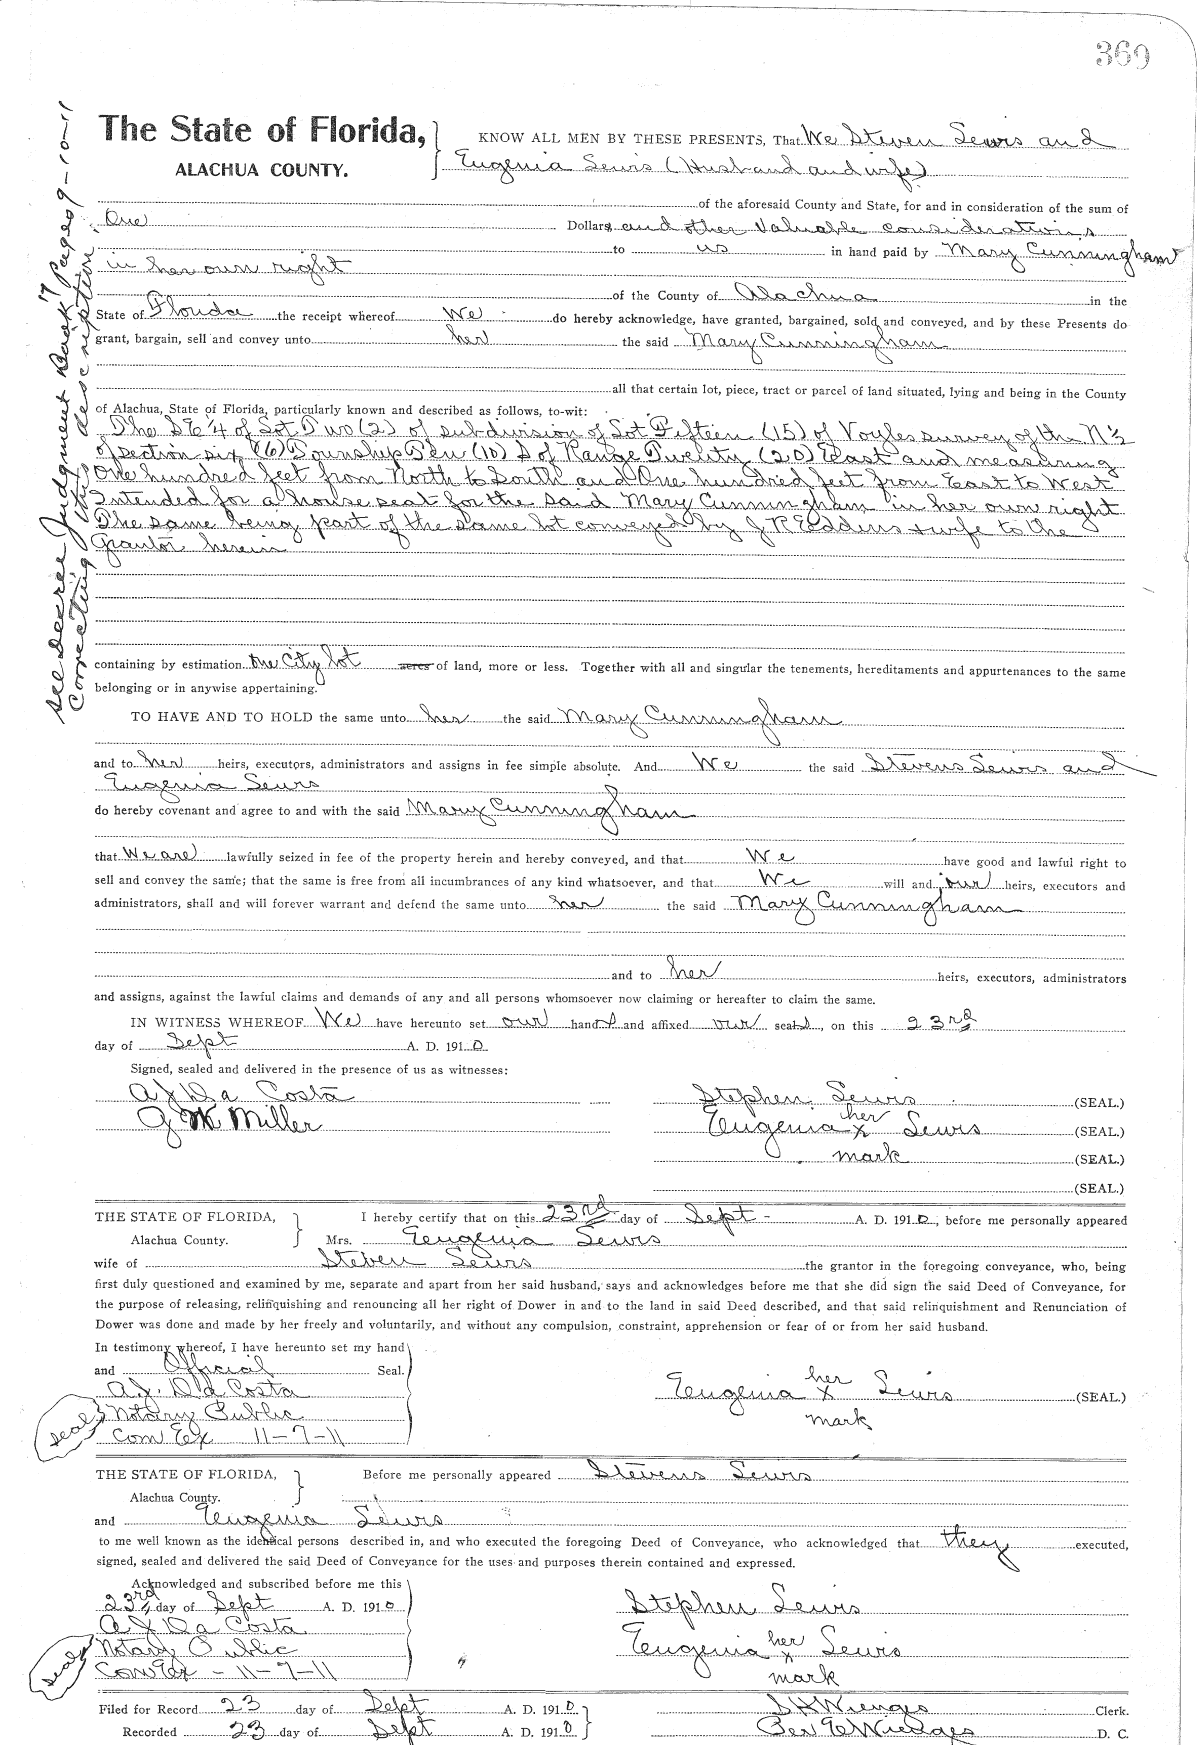 369
The State of Florida, KNOW ALL MEN BY THESE PRESENTS, That We Steven Lewis and
ALACHUA COUNTY. Eugenia Lewis (Husband and wife)
of the aforesaid County and State, for and in consideration of the sum of
One Dollars and other Valuable considerations
to us in hand paid by Mary Cunningham
in her own right
of the County of Alachua in the
State of Florida the receipt whereof We do hereby acknowledge, have granted, bargained, sold and conveyed, and by these Presents do
grant, bargain, sell and convey unto her the said Mary Cunningham
all that certain lot, piece, tract or parcel of land situated, lying and being in the County
of Alachua, State of Florida, particularly known and described as follows, to-wit:
The SE 1/4 of Lot Two (2) of subdivision of Lot Fifteen (15) of Voyles survey of the N 1/2
of section six (6) Township Ten (10) S of Range Twenty (20) East and measuring
One hundred feet from North to South and One hundred feet from East to West
Intended for a house seat for the said Mary Cunningham in her own right
The same being part of the same lot conveyed by J R Eddins & wife to the
Grantor herein
containing by estimation One City lot acres of land, more or less. Together with all and singular the tenements, hereditaments and appurtenances to the same
belonging or in anywise appertaining.
TO HAVE AND TO HOLD the same unto her the said Mary Cunningham
and to her heirs, executors, administrators and assigns in fee simple absolute. And We the said Stevens Lewis and
Eugenia Lewis
do hereby covenant and agree to and with the said Mary Cunningham
that We are lawfully seized in fee of the property herein and hereby conveyed, and that We have good and lawful right to
sell and convey the same; that the same is free from all incumbrances of any kind whatsoever, and that We will and our heirs, executors and
administrators, shall and will forever warrant and defend the same unto her the said Mary Cunningham
and to her heirs, executors, administrators
and assigns, against the lawful claims and demands of any and all persons whomsoever now claiming or hereafter to claim the same.
IN WITNESS WHEREOF We have hereunto set our hands and affixed our seals, on this 23rd
day of Sept A. D. 1910
Signed, sealed and delivered in the presence of us as witnesses:
A J Da Costa Stephen Lewis (SEAL.)
G W Miller Eugenia her x Lewis (SEAL.)
mark (SEAL.)
(SEAL.)
THE STATE OF FLORIDA, I hereby certify that on this 23rd day of Sept - A. D. 1910, before me personally appeared
Alachua County. Mrs. Eugenia Lewis
wife of Steven Lewis the grantor in the foregoing conveyance, who, being
first duly questioned and examined by me, separate and apart from her said husband, says and acknowledges before me that she did sign the said Deed of Conveyance, for
the purpose of releasing, relinquishing and renouncing all her right of Dower in and to the land in said Deed described, and that said relinquishment and Renunciation of
Dower was done and made by her freely and voluntarily, and without any compulsion, constraint, apprehension or fear of or from her said husband.
In testimony whereof, I have hereunto set my hand
and Official Seal.
A.J. Da Costa Eugenia her x Lewis (SEAL.)
seal Notary Public mark
Com Ex 11-7-11
THE STATE OF FLORIDA, Before me personally appeared Stevens Lewis
Alachua County.
and Eugenia Lewis
to me well known as the identical persons described in, and who executed the foregoing Deed of Conveyance, who acknowledged that they executed,
signed, sealed and delivered the said Deed of Conveyance for the uses and purposes therein contained and expressed.
Acknowledged and subscribed before me this
23rd day of Sept A. D. 1910 Stephen Lewis
A J Da Costa
seal Notary Public Eugenia her x Lewis
Com Ex - 11-7-11 mark
Filed for Record 23 day of Sept A. D. 1910 S H Wienges Clerk.
Recorded 23 day of Sept A. D. 1910 Ben E Wienges D. C.
See Decree Judgment Book "7" Pages 9-10-11
Correcting this description.